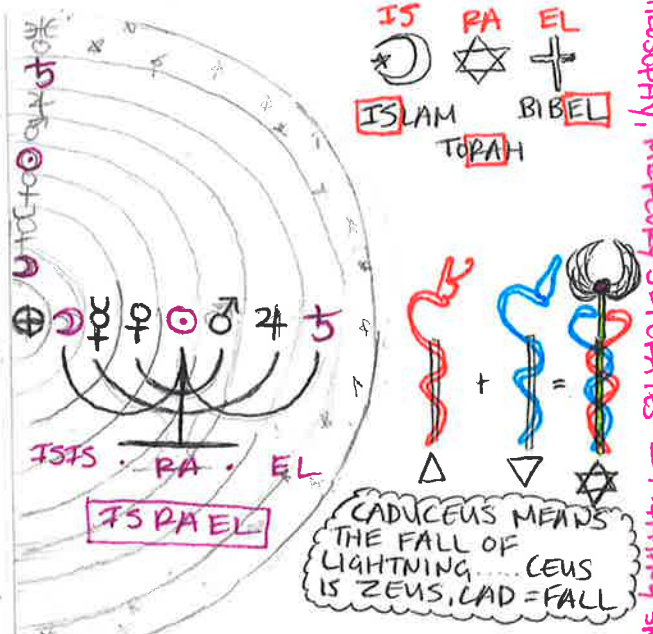 IS RA EL
ISLAM BIBEL
TORAH
ISIS · RA · EL
ISRAEL
+ =
CADUCEUS MEANS
THE FALL OF
LIGHTNING..... CEUS
IS ZEUS, CAD = FALL